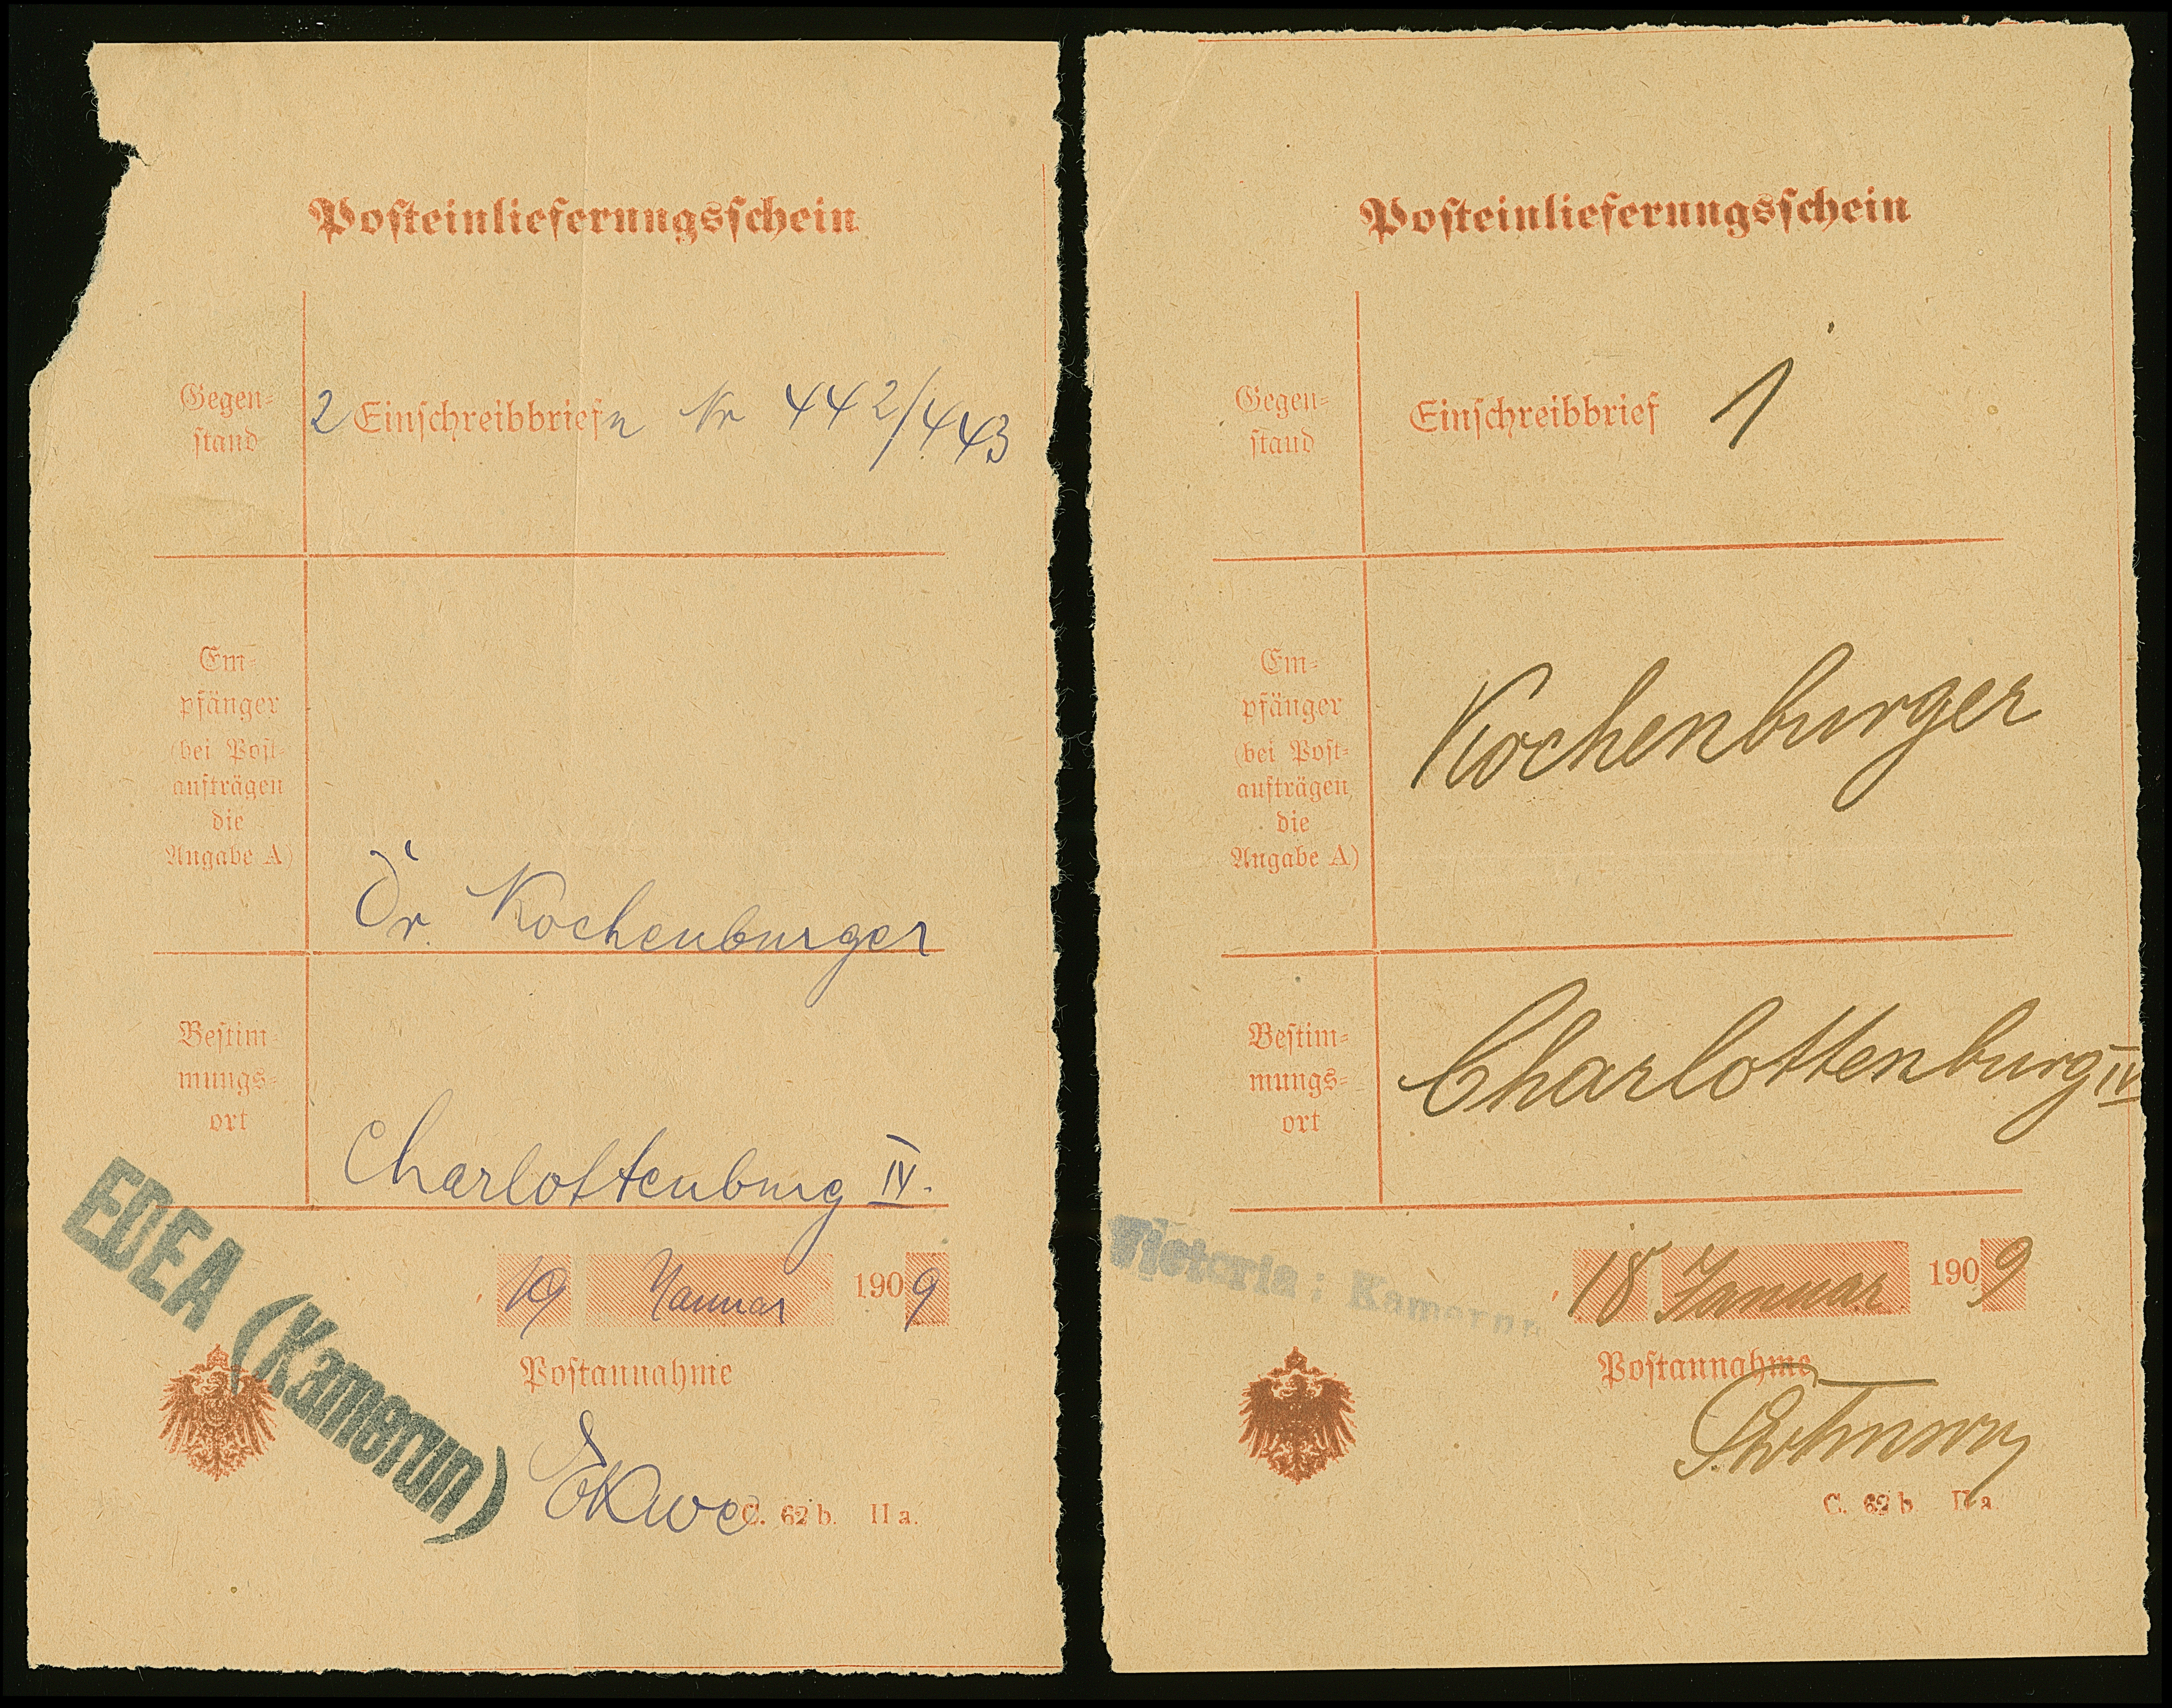 Posteinlieferungsschein
Gegen-
stand
2 Einschreibbriefn Nr 442/443
Em-
pfänger
(bei Post-
aufträgen
die
Angabe A)
Dr. Kochenburger
Bestim-
mungs-
ort
Charlottenburg IV.
EDEA (Kamerun)
19 Januar 1909
Postannahme
Ekwe
C. 62 b. II a.
Posteinlieferungsschein
Gegen-
stand
Einschreibbrief 1
Em-
pfänger
(bei Post-
aufträgen
die
Angabe A)
Kochenburger
Bestim-
mungs-
ort
Charlottenburg IV
Victoria; Kamerun
18 Januar 1909
Postannahme
C. 62 b. II a.